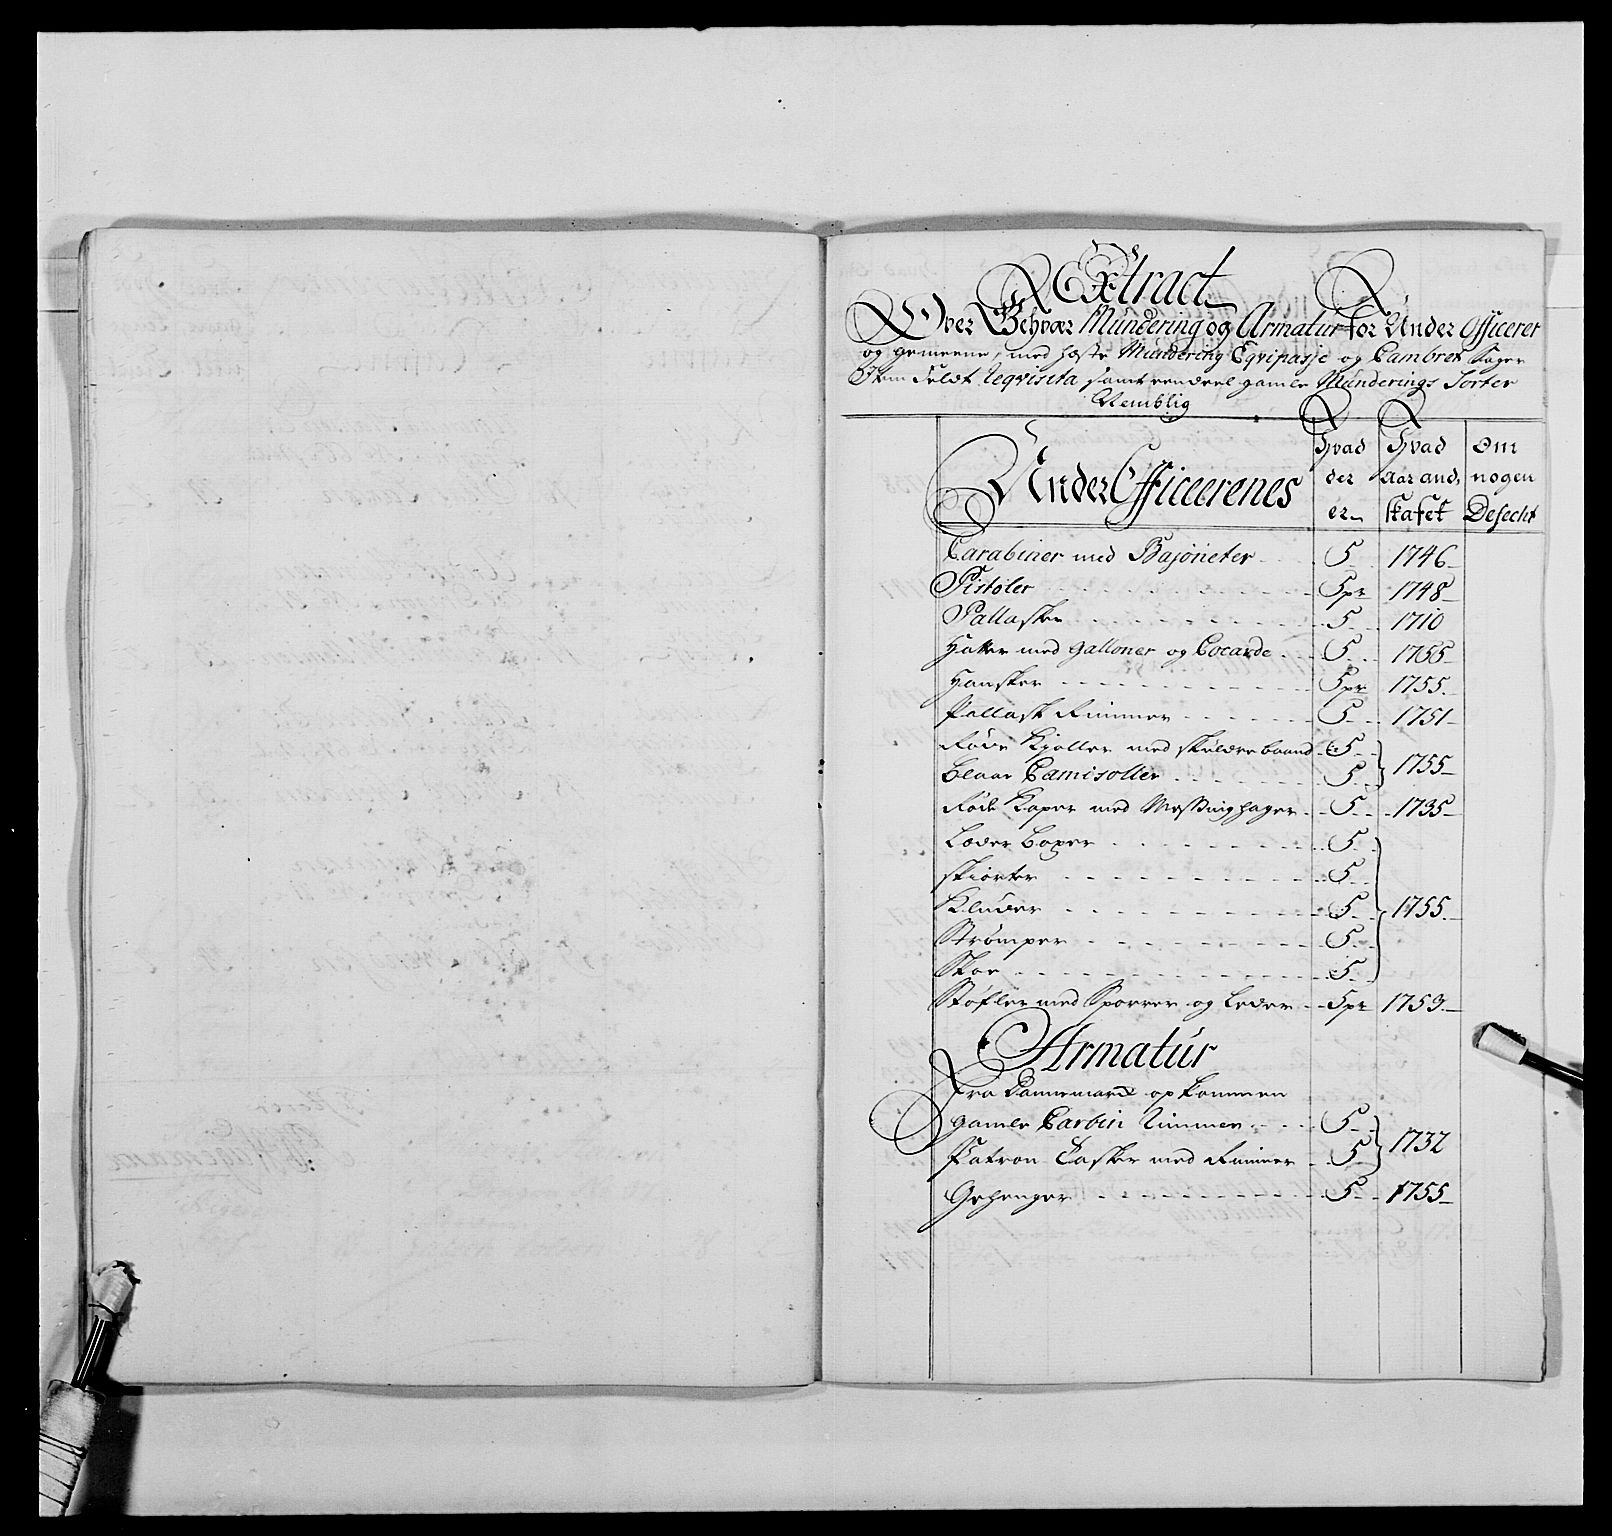 Extract
Over Gehvær Mundering og Armatur for Under Officerer
og gemeene, med heste Mundering Eqvipasje og Cambret Sager
Item Feldt Reqvisita samt eendeel gamle Munderings Sorter
Nemblig
Under Officeerenes
Hvad der er
Hvad Aar and, skafet
Om nogen Defecht
Carabiner med Bajoneter 5 1746
Pistoler 5 pr 1748
Pallasker 5 1710
Hatter med galloner og Cocarde 5 1755
Hansker 5 pr 1755
Pallask Rimmer 5 1751
Røde Kjoller med skulderbaand 5
Blaae Camisoller 5 } 1755
Røde Kaper med Messinghager 5 1735
Læder Boxer 5
Skiorter 5
Kluder 5 } 1755
Strømper 5
Skoe 5
Støfler med Sporrer og Leder 5 pr 1753
Armatur
Fra Dannemarck opkommen
gamle Carbin Rimmer 5
Patron Tasker med Rimmer 5 } 1732
Gehenger 5 1755